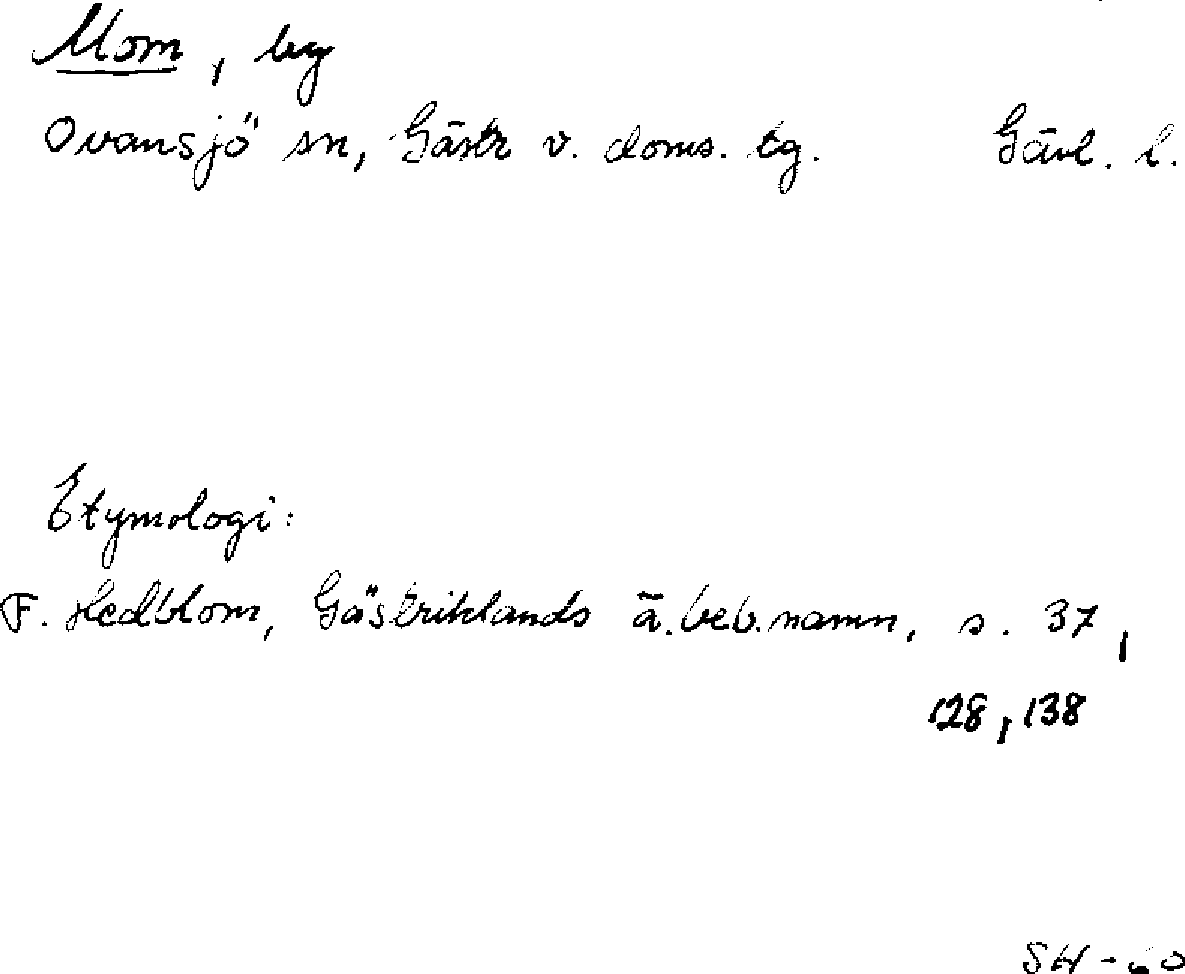 Mom, by
Ovansjö sn, Gästr v. doms. tg. Gävl. l.
Etymologi:
F. Hedblom, Gästriklands ä. beb.namn, s. 37,
128, 138